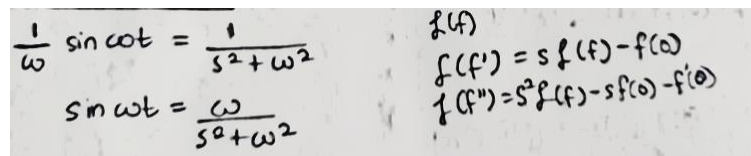 1/ω sin ωt = 1/(s² + ω²)
sin ωt = ω/(s² + ω²)
ℒ(f)
ℒ(f') = sℒ(f) - f(0)
ℒ(f'') = s²ℒ(f) - sf(0) - f'(0)